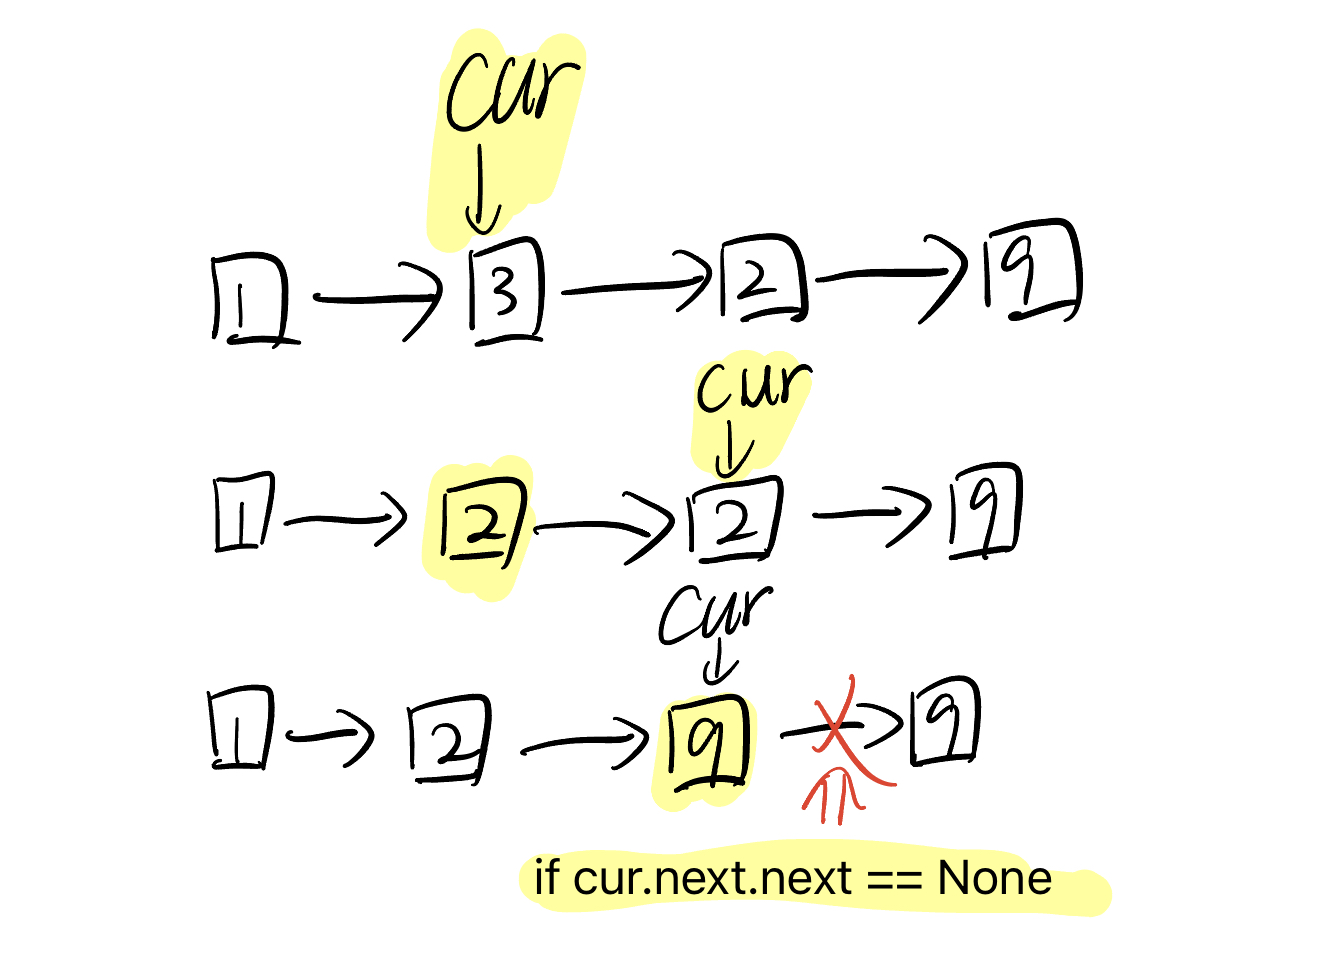 cur
1 3 2 9
cur
1 2 2 9
cur
1 2 9 9
if cur.next.next == None